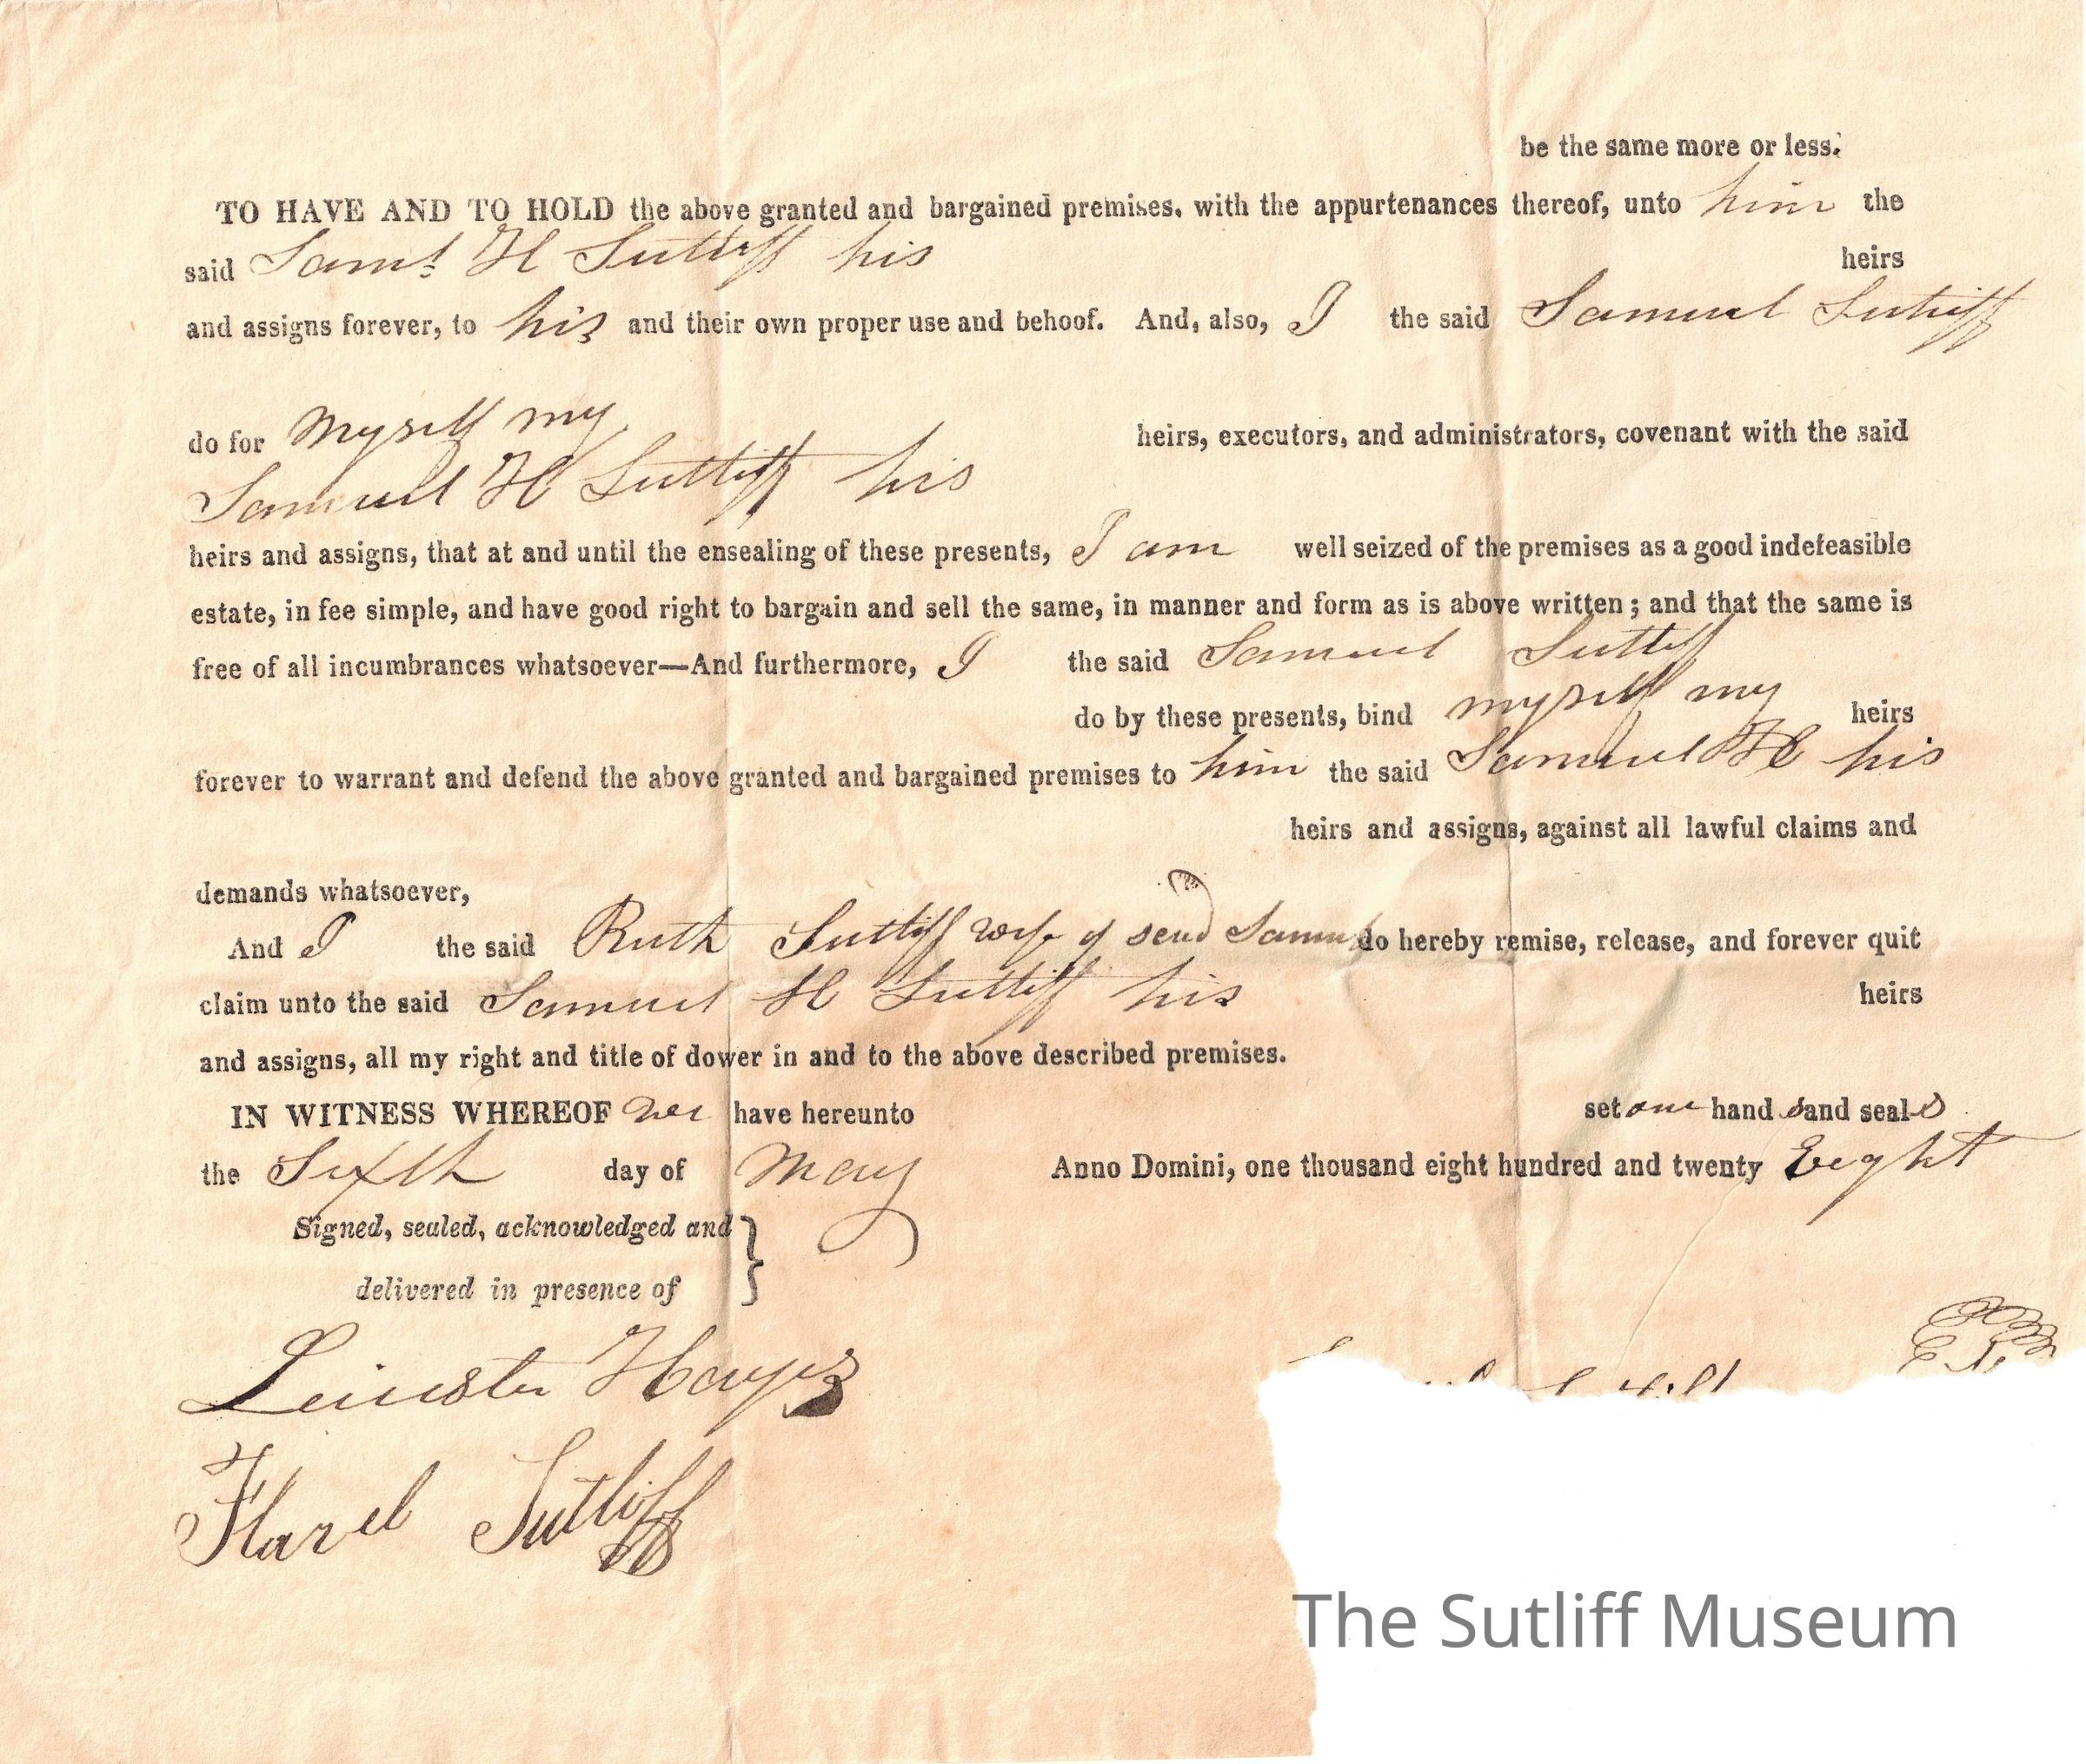 be the same more or less.
TO HAVE AND TO HOLD the above granted and bargained premises, with the appurtenances thereof, unto him the
said Saml H Sutliff his heirs
and assigns forever, to his and their own proper use and behoof. And, also, I the said Samuel Sutliff
do for myself my heirs, executors, and administrators, covenant with the said
Samuel H Sutliff his
heirs and assigns, that at and until the ensealing of these presents, I am well seized of the premises as a good indefeasible
estate, in fee simple, and have good right to bargain and sell the same, in manner and form as is above written; and that the same is
free of all incumbrances whatsoever—And furthermore, I the said Samuel Sutliff
do by these presents, bind myself my heirs
forever to warrant and defend the above granted and bargained premises to him the said Samuel H his
heirs and assigns, against all lawful claims and
demands whatsoever,
And I the said Ruth Sutliff wife of said Samu do hereby remise, release, and forever quit
claim unto the said Samuel H Sutliff his heirs
and assigns, all my right and title of dower in and to the above described premises.
IN WITNESS WHEREOF we have hereunto set our hand s and seal s
the Sixth day of May Anno Domini, one thousand eight hundred and twenty Eight
Signed, sealed, acknowledged and
delivered in presence of }
Leicester Hayes
Flavel Sutliff
The Sutliff Museum